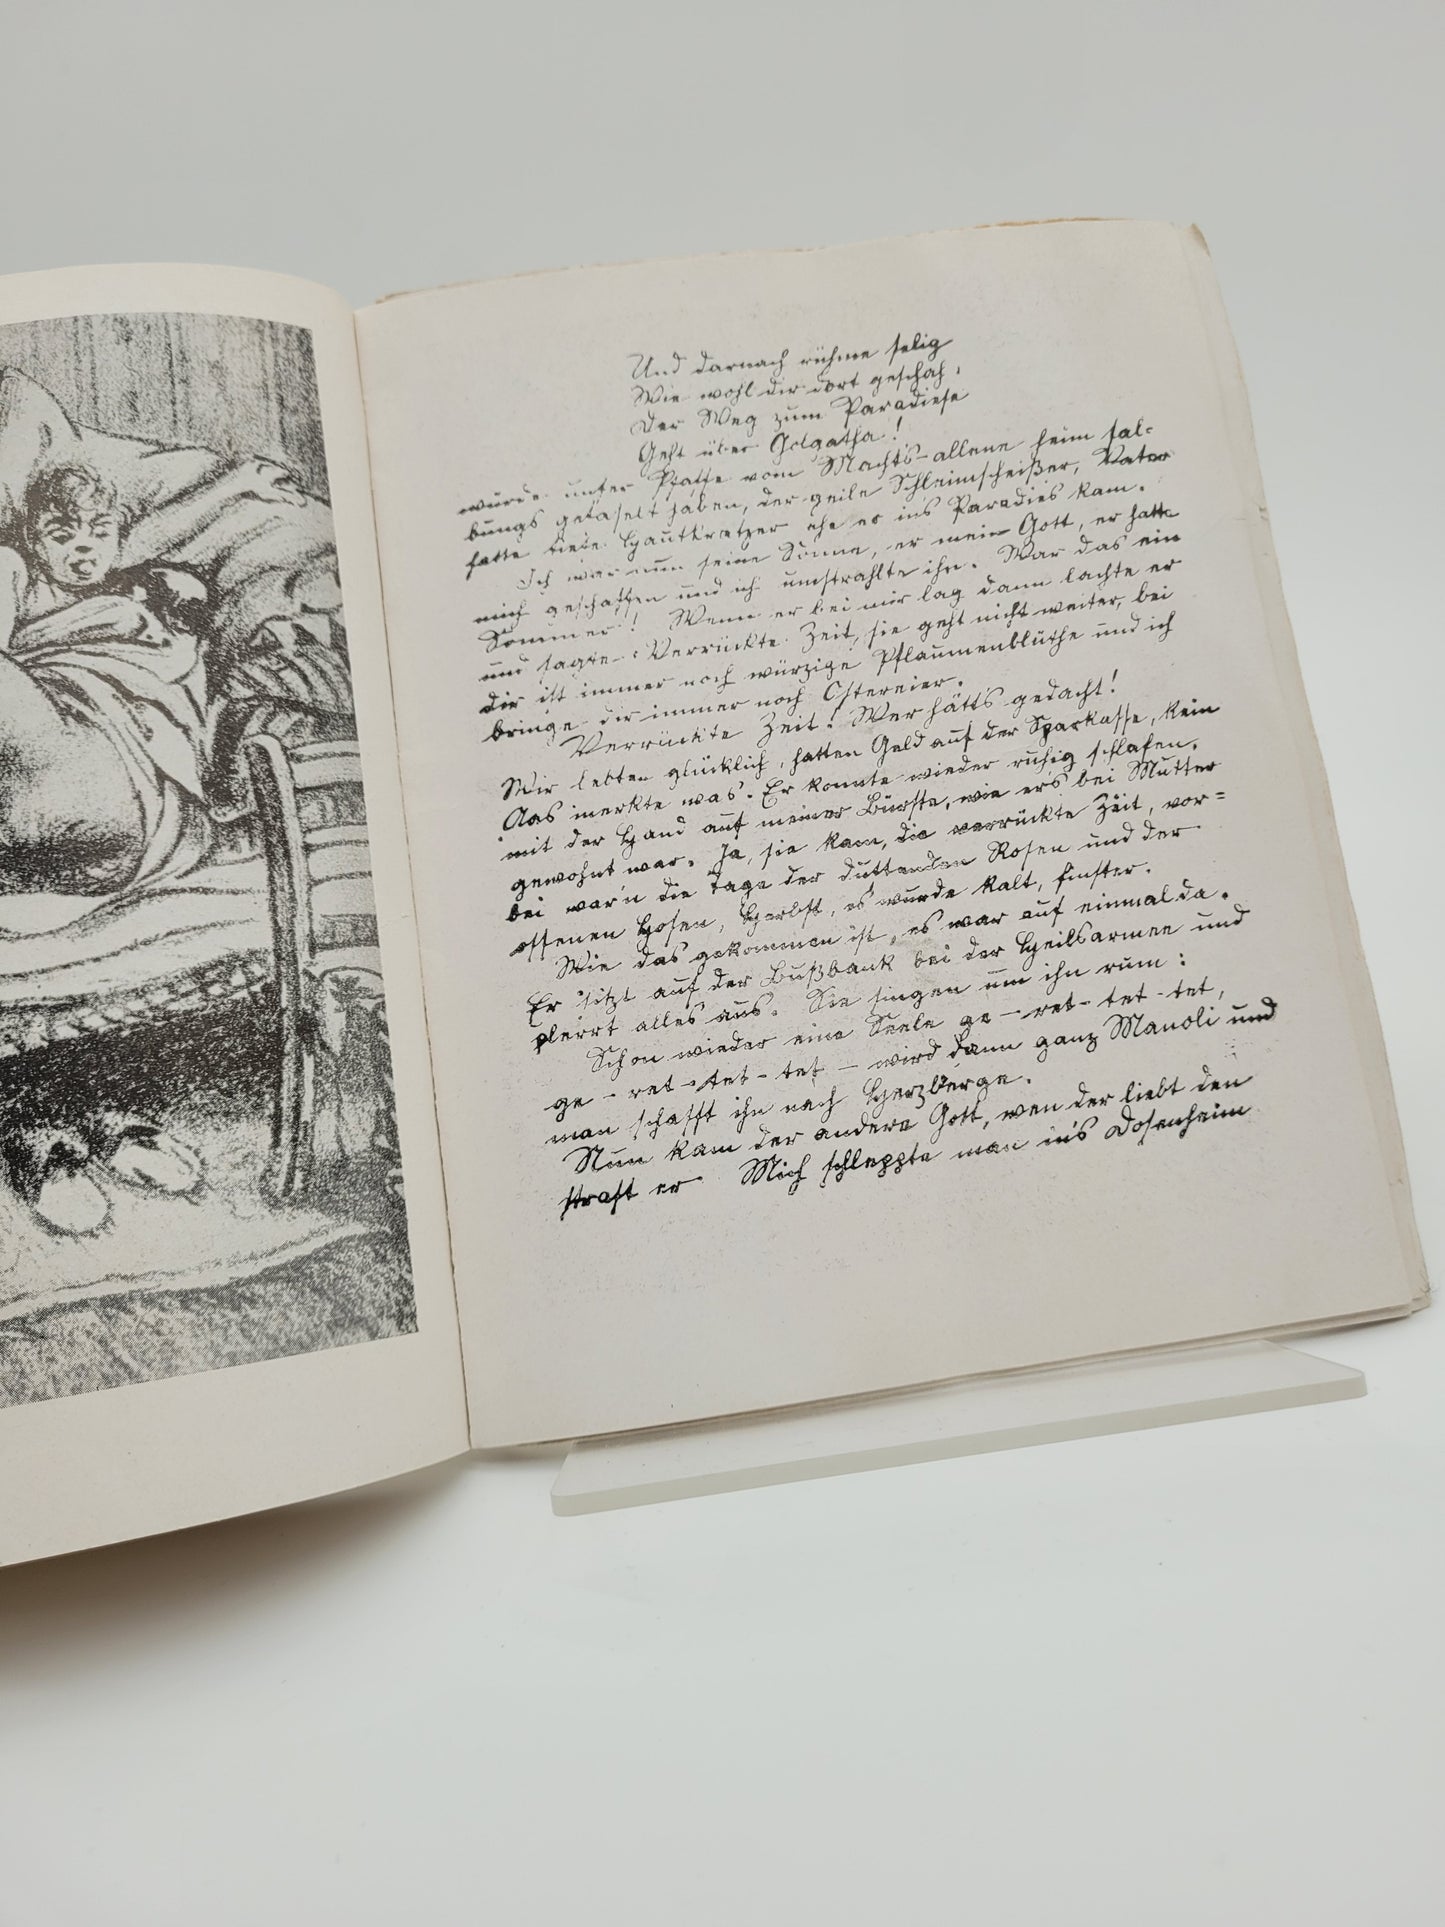 Und darnach rühme selig
Wie wohl dir dort geschah,
Der Weg zum Paradiese
Geht über Golgatha!
würde unser Pfaffe vom Machts-allene heim sal-
bungs gefaselt haben, der geile Schleimscheißer, Vater
hatte viele Hautkratzer ehe er in's Paradies kam.
Ich war nun seine Sonne, er mein Gott, er hatte
mich geschaffen und ich umstrahlte ihn. War das ein
Sommer! Wenn er bei mir lag dann lachte er
und sagte: Verrückte Zeit, sie geht nicht weiter, bei
dir ist immer noch würzige Pflaumenblüthe und ich
bringe dir immer noch Ostereier.
Verrückte Zeit! Wer hätts gedacht!
Wir lebten glücklich, hatten Geld auf der Sparkasse, kein
Aas merkte was. Er konnte wieder ruhig schlafen,
mit der Hand auf meiner Bürste, wie er's bei Mutter
gewohnt war. Ja, sie kam, die verrückte Zeit, vor=
bei war'n die Tage der duftenden Rosen und der
offenen Hosen, Herbst, es wurde kalt, finster.
Wie das gekommen ist, es war auf einmal da.
Er sitzt auf der Bußbank bei der Heilsarmee und
plerrt alles aus. Sie singen um ihn rum:
Schon wieder eine Seele ge-ret-tet-tet,
ge-ret-tet-tet - wird dann ganz Manoli und
man schafft ihn nach Herzberge.
Nun kam der andere Gott, wen der liebt den
straft er. Mich schleppte man in's Dosenheim